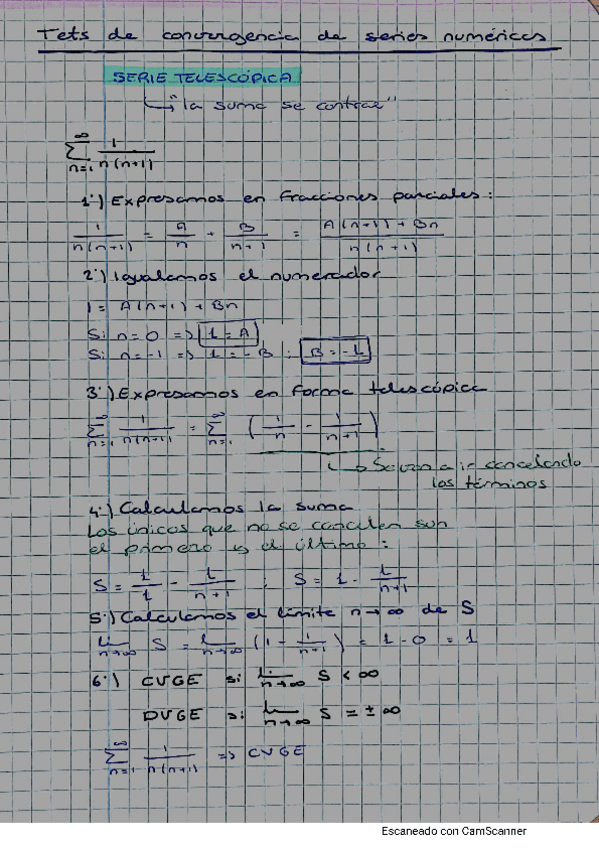 Tets de convergencia de series numéricas
SERIE TELESCÓPICA
↳ "la suma se contrae"
∞ ∑ n=1 1/(n(n+1))
1º) Expresamos en fracciones parciales:
1/(n(n+1)) = A/n + B/(n+1) = (A(n+1) + Bn)/(n(n+1))
2º) Igualamos el numerador
1 = A(n+1) + Bn
Si n=0 => 1 = A
Si n=-1 => 1 = -B ; B = -1
3º) Expresamos en forma telescópica
∞ ∑ n=1 1/(n(n+1)) = ∞ ∑ n=1 (1/n - 1/(n+1))
↳ Se van a ir cancelando
los términos
4º) Calculamos la suma
Los únicos que no se cancelen son
el primero y el último:
S = 1/1 - 1/(n+1) ; S = 1 - 1/(n+1)
5º) Calculamos el límite n→∞ de S
lim n→∞ S = lim n→∞ (1 - 1/(n+1)) = 1 - 0 = 1
6º) CVGE si lim n→∞ S < ∞
DVGE si lim n→∞ S = ±∞
∞ ∑ n=1 1/(n(n+1)) => CVGE
Escaneado con CamScanner